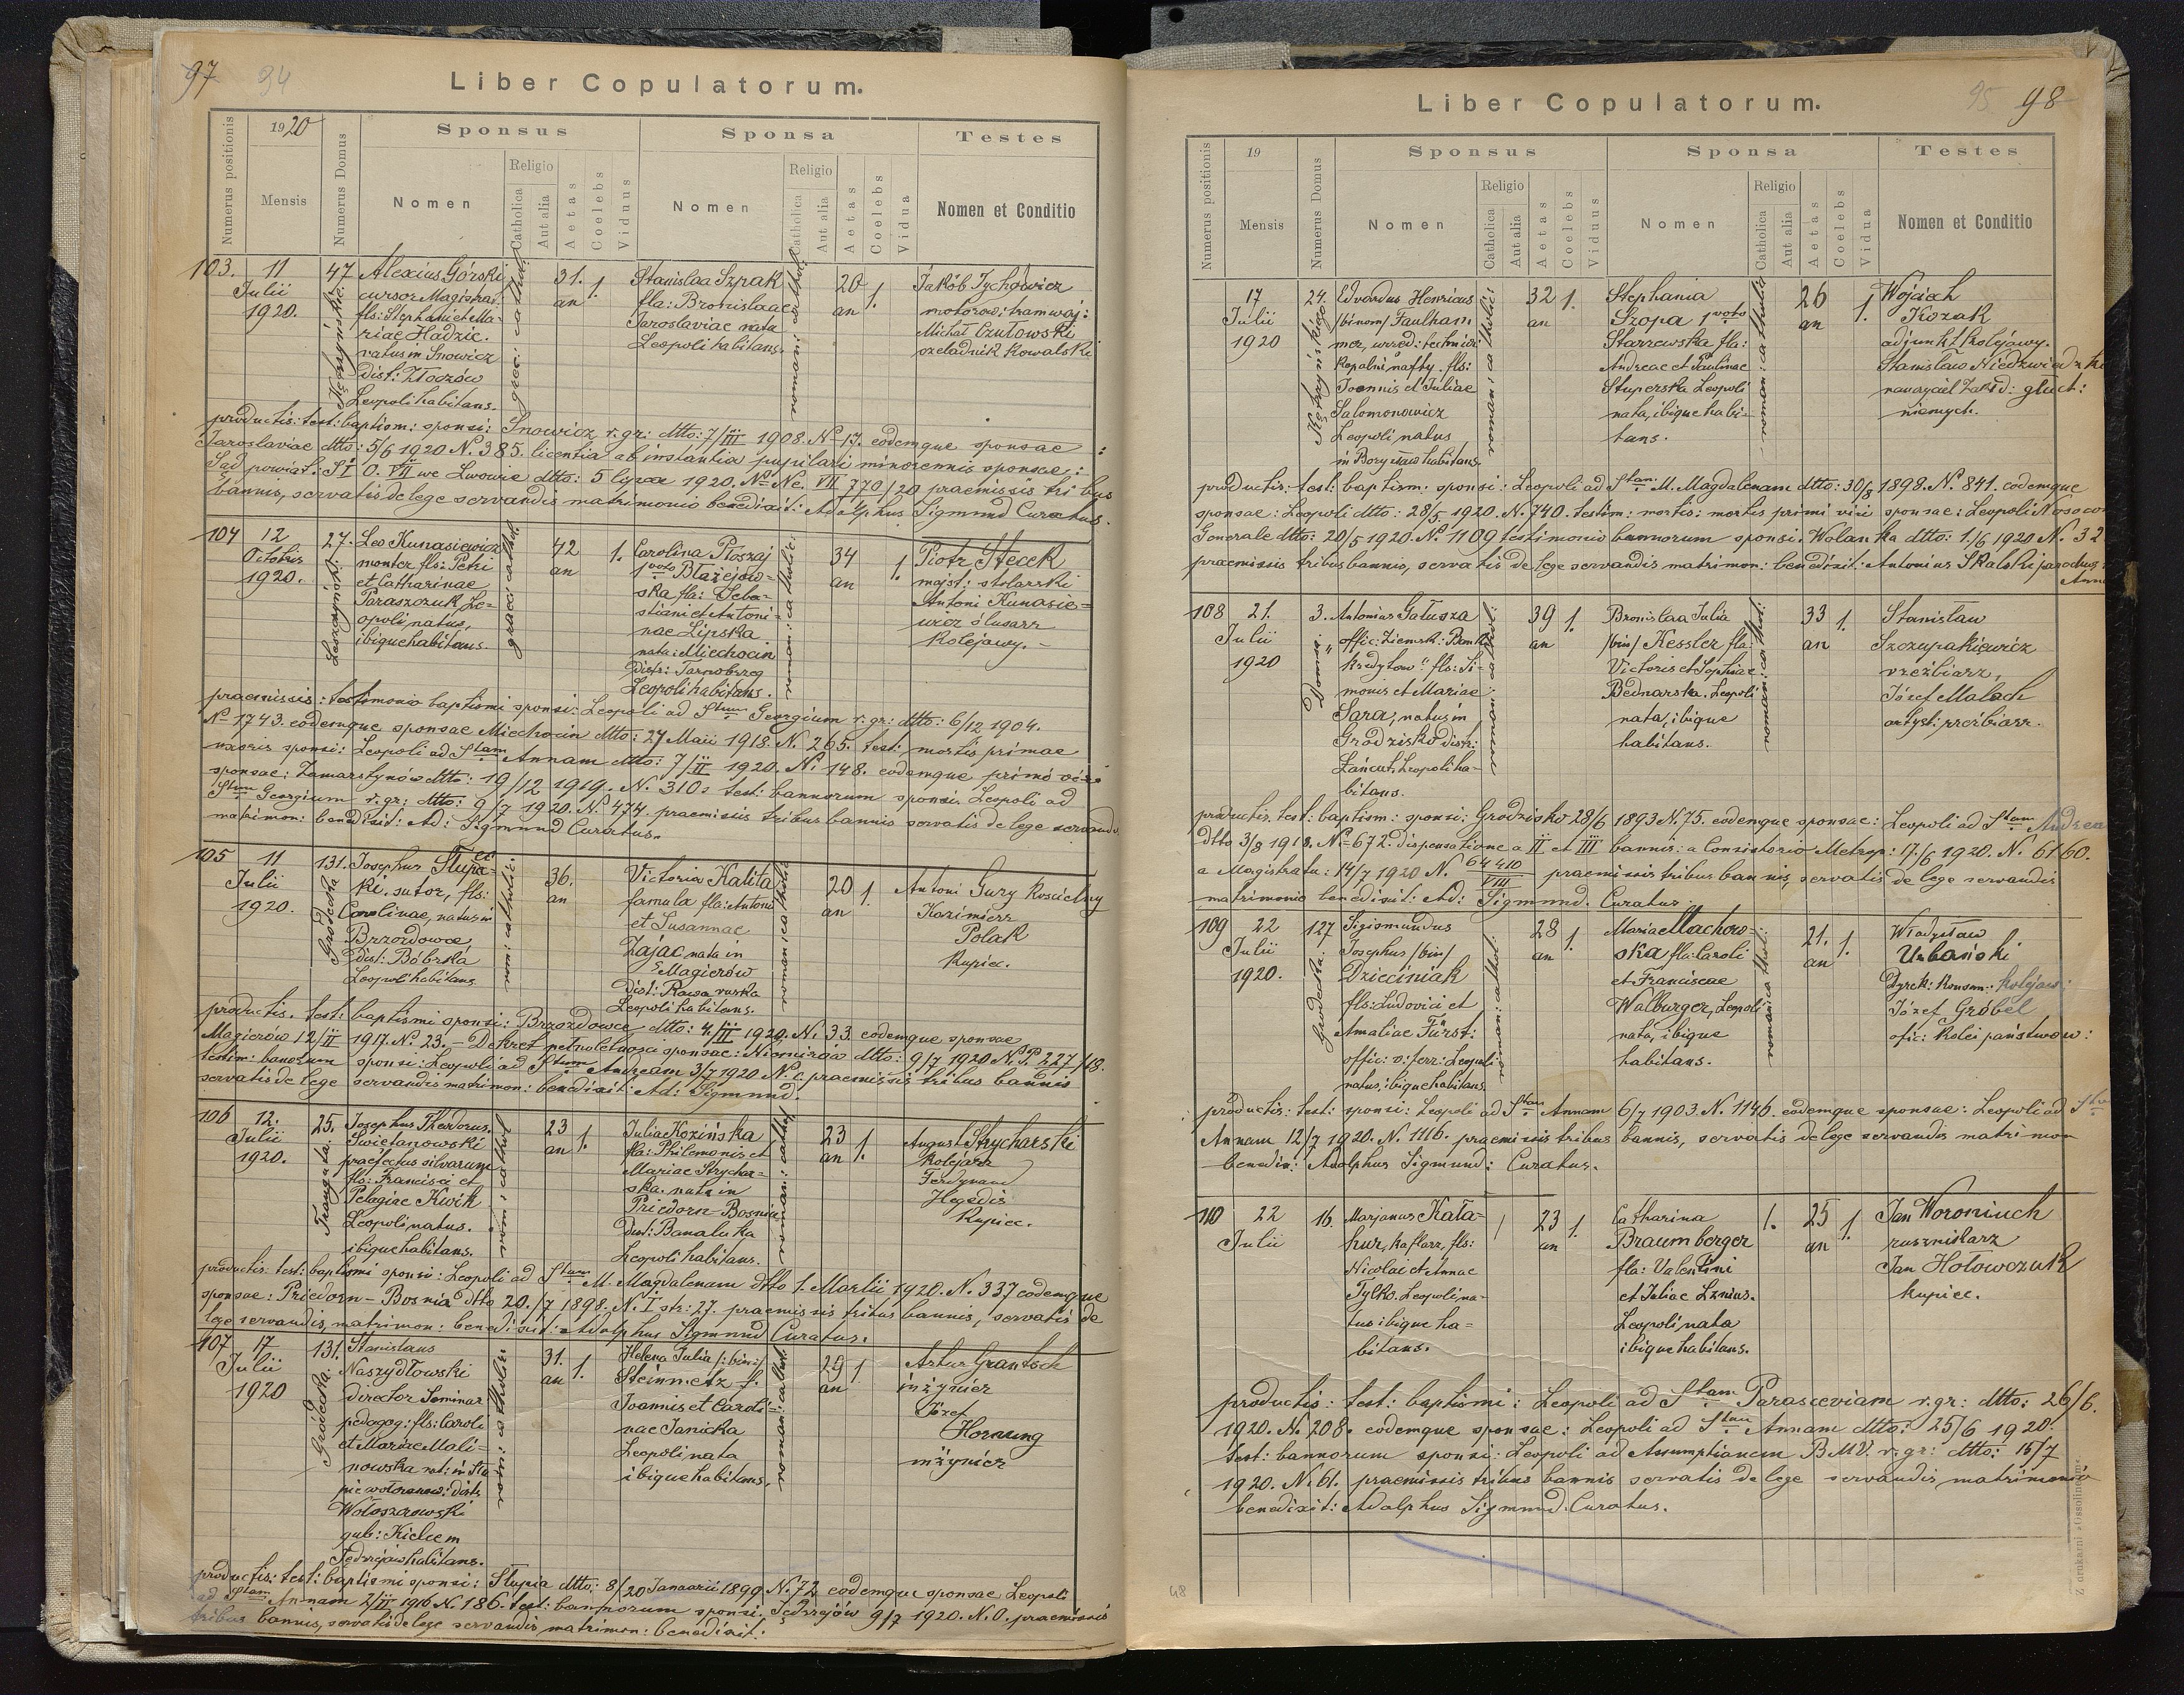 97 94
Liber Copulatorum.
Numerus positionis
1920
Mensis
Numerus Domus
Sponsus
Nomen
Religio
Catholica
Aut alia
Aetas
Coelebs
Viduus
Sponsa
Nomen
Religio
Catholica
Aut alia
Aetas
Coelebs
Vidua
Testes
Nomen et Conditio
103.
11
Julii
1920.
47.
Alexius Górski
cursor Magistrat.
fls: Stephani et Ma-
riae Hadzic.
natus in Snowicz
dist: Złoczów
Leopoli habitans.
graeci: cathol:
31.
an
1.
Stanislaa Szpak
fla: Bronislaae
Jaroslaviae nata
Leopoli habitans.
romani: cathol:
20
an
1.
Jakób Tychowicz
motorow: tramwaj:
Michał Czułowski
czeladnik kowalski
productis: test: baptism: sponsi: Snowicz r. gr: dtto: 7/III 1908. No 17. eodemque sponsae
Jaroslaviae dtto: 5/6 1920 N. 385. licentia ab instantia pupilari minorennis sponsae:
Sąd powiat: S I O. VII we Lwowie dtto: 5 lipca 1920. No Nc. VII 770/20 praemissis tribus
bannis, servatis de lege servandis matrimonio benedixit: Adolphus Sigmund Curatus.
104
12
Octobris
1920.
27.
Leo Kunasiewicz
monter fls: Petri
et Catharinae
Paraszczuk, Le-
opoli natus,
ibique habitans.
graeci: cathol:
42
an
1.
Carolina Płoszaj
1voto Błażejow-
ska fla: Seba-
stiani et Antoni-
nae Lipska
nata: Miechocin
distr: Tarnobrzeg
Leopoli habitans.
roman: catholic:
34
an
1.
Piotr Stecek
majst: stolarski
Antoni Kunasie-
wicz ślusarz
kolejowy.
praemissis: testimonio baptismi sponsi: Leopoli ad Stum Georgium r. gr: dtto: 6/12 1904.
No 1743. eodemque sponsae Miechocin dtto: 27 Maii 1918. N. 265. test: mortis primae
uxoris sponsi: Leopoli ad Stam Annam dtto: 7/II 1920. N: 148. eodemque primi viri
sponsae: Zamarstynów dtto: 19/12 1919. N. 310. test: bannorum sponsi. Leopoli ad
Stum Georgium r. gr: dtto: 9/7 1920. No 474. praemissis tribus bannis servatis de lege servandis
matrimon: benedixit: Ad: Sigmund Curatus.
105
11
Julii
1920.
131.
Gródecka
Josephus Słupec-
ki. sutor, fls:
Carolinae, natus in
Brzozdowce
dist: Bóbrka
Leopoli habitans
rom: catholic:
36.
an
Victoria Kalita
famula fla: Antoni
et Susannae
Zając nata in
Magierów
dist: Rawa ruska
Leopoli habitans.
romani: catholic:
20
an
1.
Antoni Gury kościelny
Kazimierz
Polak
kupiec.
productis. test: baptismi sponsi: Brzozdowce dtto: 4/III 1920. N: 33. eodemque sponsae
Magierów 12/II 1917. No 23. – Dekret pełnoletności sponsae: Niemirów dtto: 9/7 1920 N. P 227/18.
testim: banorum sponsi: Leopoli ad Stum Andream 3/7 1920 N. 0. praemissis tribus bannis
servatis de lege servandis matrimon: benedixit: Ad: Sigmund.
106
12.
Julii
1920.
25.
Josephus Theodorus
Świetanowski
praefectus silvarum
fls: Francisci et
Pelagiae Kwik
Leopoli natus.
ibique habitans.
rom: cathol:
23
an
1.
Julia Kozińska
fla: Philemonis et
Mariae Strychar-
ska. nata in
Priedorn – Bosnia
dist: Banaluka
Leopoli habitans.
roman: cathol:
23
an
1.
August Strycharski
kolejarz
Ferdynand
Hegedis
kupiec.
productis: test: baptismi sponsi: Leopoli ad Stam M. Magdalenam dtto 1. Martii 1920. N. 337 eodemque
sponsae: Priedorn – Bosnia dtto 20./7 1898. N. I str: 27. praemissis tribus bannis, servatis de
lege servandis, matrimon: benedixit: Adolphus Sigmund Curatus.
107
17
Julii
1920
131.
Gródecka
Stanislaus
Naszydłowski
director Seminar
pedagog: fls: Caroli
et Mariae Mali-
nowska nat: in Słu
Włoszczowski
gub: Kielcem
Jędrzejów habitans.
rom: catholic:
31.
an
1.
Helena Julia /:bin:/
Steinmetz f.
Joannis et Caroli-
nae Janicka
Leopoli nata
ibique habitans,
roman: cathol:
29
an
1
Artur Grantsch
inżynier
Józef
Hornung
inżynier
productis: test: baptismi sponsi: Słupia dtto: 8/20 Januarii 1899 N. 72 eodemque sponsae Leopoli
ad Stam Annam 2/III 1916 N. 186. test: bannorum sponsi. Jędrzejów 9/7 1920. N. 0. praemissis
tribus bannis, servatis de lege servandis matrimon: benedixit:
95 98
Liber Copulatorum.
Numerus positionis
19
Mensis
Numerus Domus
Sponsus
Nomen
Religio
Catholica
Aut alia
Aetas
Coelebs
Viduus
Sponsa
Nomen
Religio
Catholica
Aut alia
Aetas
Coelebs
Vidua
Testes
Nomen et Conditio
17
Julii
1920
24.
Edvardus Henricus
/binom/ Faulham
mer, urzęd: techniczn:
kopalni nafty. fls:
Joannis et Juliae
Salomonowicz
Leopoli natus
in Borysław habitans.
roman: catholic:
32
an
1.
Stephania
Szopa 1voto
Starzewska fla:
Andreae et Paulinae
Stuperska Leopoli
nata, ibique habi-
tans.
roman: catholic
26
an
1.
Wojciech
Kozak
adjunkt kolejowy.
Stanisław Niedzwiedzki
nauczyciel Zakład: głuch:
niemych.
productis: test: baptism: sponsi: Leopoli ad Stam M. Magdalenam dtto: 30/8 1898. N. 841. eodemque
sponsae: Leopoli dtto: 28/5. 1920. N. 740. testim: mortis: mortis primi viri sponsae: Leopoli Nosocom
Generale dtto: 20/5 1920. No 1109 testimonio bannorum sponsi. Wolanka dtto: 1/6 1920 N. 32
praemissis tribus bannis, servatis de lege servandis matrimon: benedixit: Antonius Skalski parochus
108
21.
Julii
1920
3.
Antonius Gałusza
offic: Ziemsk: Bank
kredytow" fls: Si-
monis et Mariae
Sara, natus in
Grodzisko distr:
Łańcut, Leopoli ha-
bitans.
roman: cathol:
39
an
1.
Bronislaa Julia
/bin/ Kessler fla:
Victoris et Sophiae
Bednarska. Leopoli
nata, ibique
habitans.
roman: cathol:
33
an
1.
Stanisław
Szczupakiewicz
rzeźbiarz,
Józef Malach
artyst: rzeźbiarz.
productis. test: baptism: sponsi: Grodzisko 28/6 1893 N. 75. eodemque sponsae: Leopoli ad Stam Andrea
dtto 3/8 1918. No 672. dispensatione a II et III bannis: a Consistorio Metrop: 17./6 1920. N. 6160.
a Magistratu: 14/7 1920 N. 64410/VIII praemissis tribus bannis, servatis de lege servandis
matrimonio benedixit: Ad: Sigmund. Curatus.
109
22
Julii
1920.
127
Grodecka.
Sigismundus
Josephus /bin/
Dzieciniak
fls: Ludovici et
Amaliae Fürst:
offic: v: ferr: Leopoli
natus, ibique habitans.
roman: cathol:
28
an
1.
Maria Machow-
ska fla: Caroli
et Franciscae
Walburger, Leopoli
nata, ibique
habitans.
romani: cathol:
21.
an
1.
Władysław
Urbański
Dyrek: konsum: kolejow:
Józef Gröbel
ofic: kolei państwow:
productis: test: sponsi: Leopoli ad Stam Annam 6/7 1903. N. 1146. eodemque sponsae: Leopoli ad Stam
Annam 12/7 1920. N. 1116. praemissis tribus bannis, servatis de lege servandis matrimon
benedix: Adolphus Sigmund: Curatus.
110
22
Julii
16.
Marjanus Kata-
hur, kaflarz, fls:
Nicolai et Annae
Tylko. Leopoli na-
tus ibique ha-
bitans.
/
23
an
1.
Catharina
Braumberger
fla: Valentini
et Juliae Lznius.
Leopoli, nata
ibique habitans.
1.
25
an
1.
Jan Woroniuch
rusznikarz
Jan Hołowczuk
kupiec.
productis: test: baptismi: Leopoli ad Stam Parasceviam r. gr: dtto: 26/6.
1920. N. 208. eodemque sponsae: Leopoli ad Stam Annam dtto: 25/6 1920.
test: bannorum sponsi: Leopoli ad Assumptianem B.M.V. r. gr: dtto: 15/7
1920. N. 61. praemissis tribus bannis servatis de lege servandis matrimonio
benedixit: Adolphus Sigmund. Curatus.
48